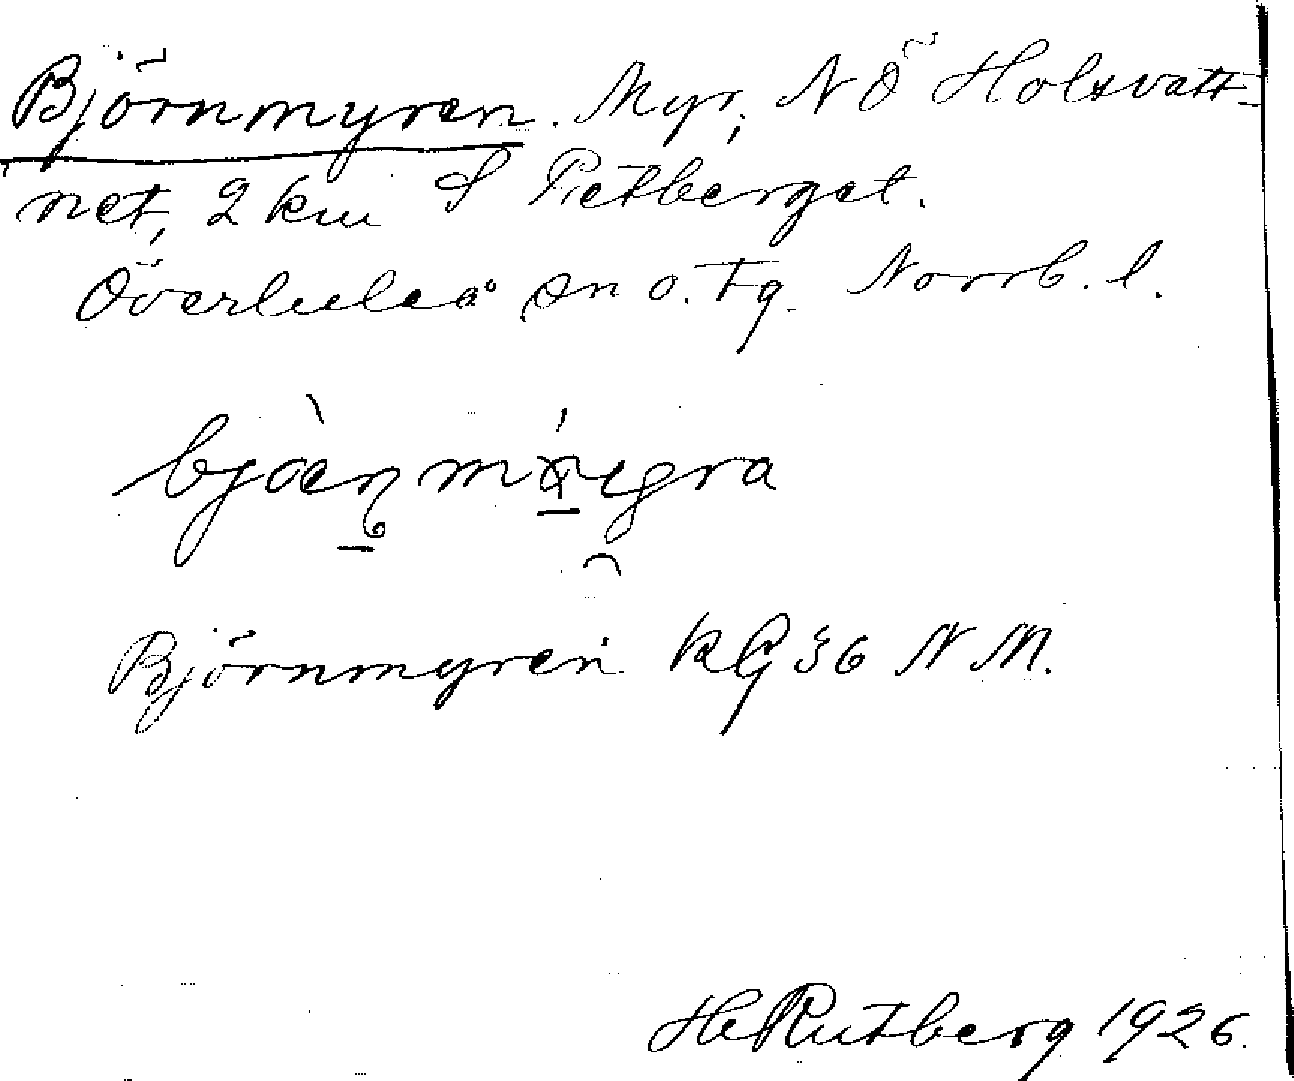 Björnmyren. Myr, NÖ Holsvatt-
net, 2 km S Pietberget.
Överluleå sn o. tg. Norrb. l.
Björnmyren KG 36 N M.
H Rutberg 1926.